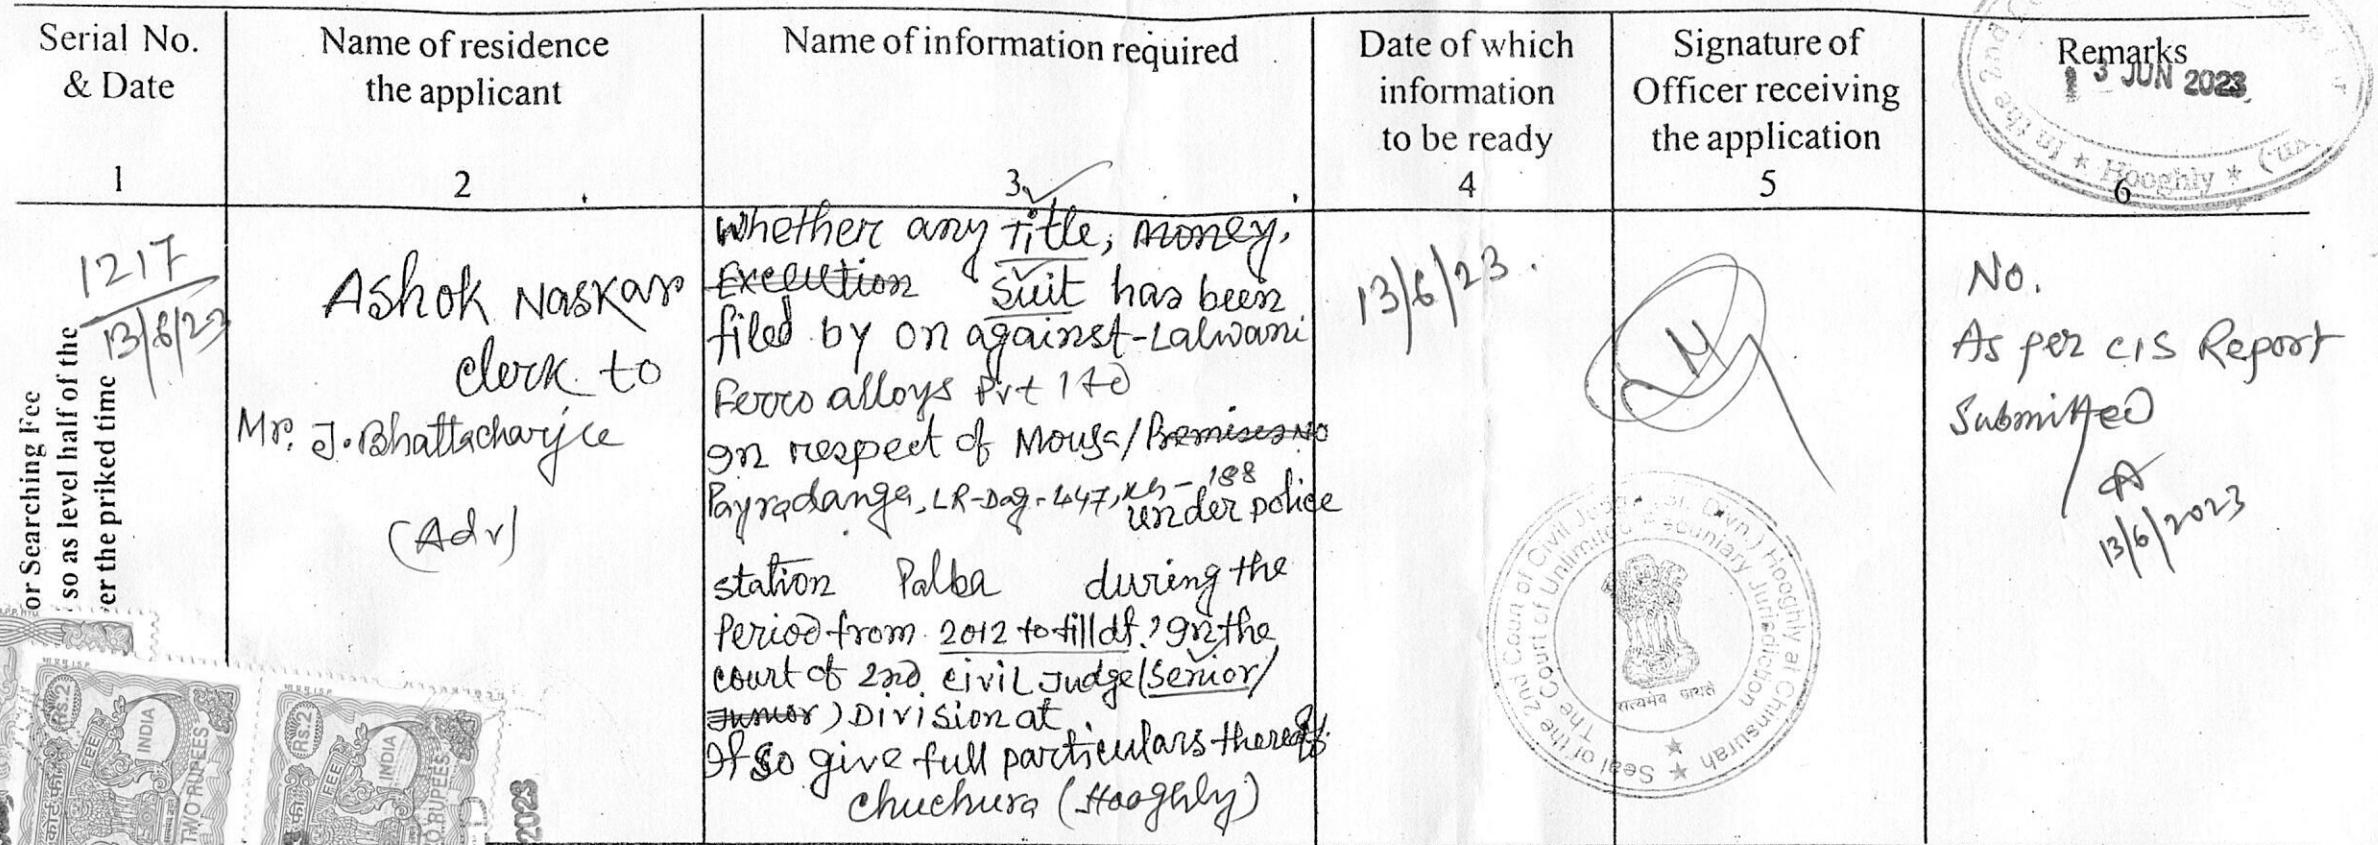 Serial No.
& Date
1
Name of residence
the applicant
2
Name of information required
3
Date of which
information
to be ready
4
Signature of
Officer receiving
the application
5
Remarks
6
13 JUN 2023
In the 2nd
★ Hooghly ★
1217
13/6/23
or Searching Fee
so as level half of the
er the priked time
Ashok Naskar
clerk to
Mr. J. Bhattacharjee
(Adv)
Whether any Title, money,
Execution Suit has been
filed by on against Lalwani
Ferro alloys Pvt ltd
In respect of Mouza/Premises No
Payradanga, LR-Dag-447, kh-188
under police
station Polba during the
Period from 2012 to till dt? In the
court of 2nd civil Judge (Senior/
Junior) Division at
If so give full particulars thereof
Chuchura (Hooghly)
13/6/23.
No.
As per CIS Report
Submitted
13/6/2023
Seal of the 2nd Court of Civil Judge (Sr. Divn.) Hooghly at Chinsurah
The Court of Unlimited Pecuniary Jurisdiction
सत्यमेव जयते
Rs.2
INDIA
FEE
TWO RUPEES
Rs.2
INDIA
FEE
TWO RUPEES
2023